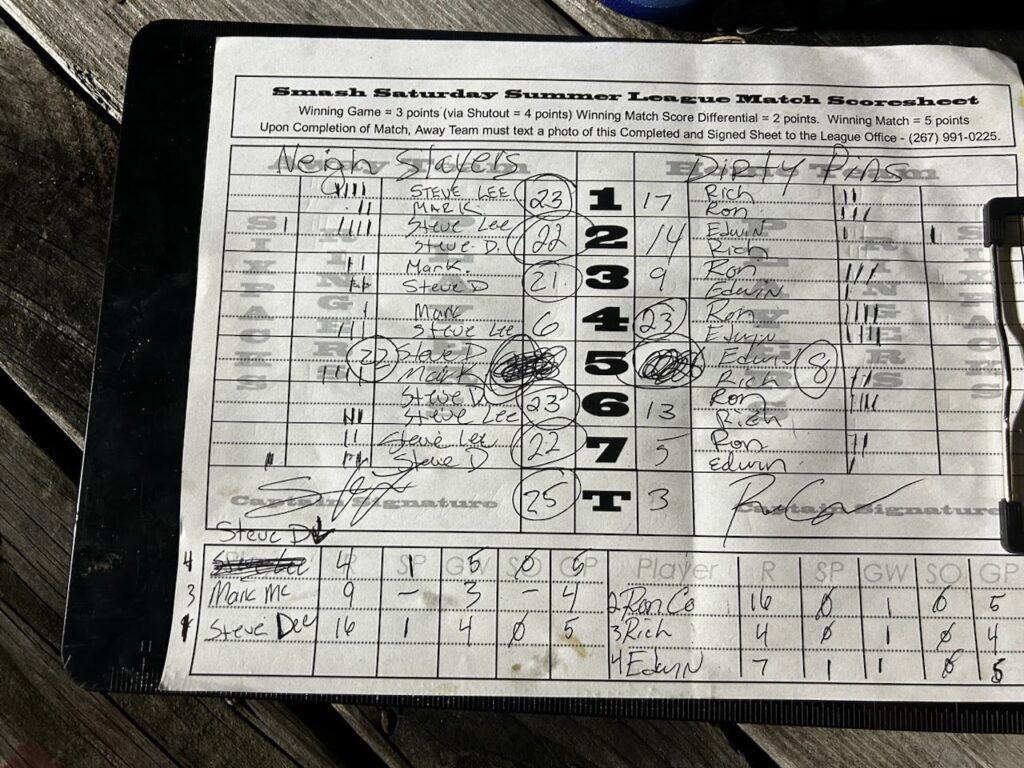 Smash Saturday Summer League Match Scoresheet
Winning Game = 3 points (via Shutout = 4 points) Winning Match Score Differential = 2 points. Winning Match = 5 points
Upon Completion of Match, Away Team must text a photo of this Completed and Signed Sheet to the League Office - (267) 991-0225.
Neigh Slayers Dirty Pins
STEVE LEE 23 1 17 Rich
MARK Ron
Steve Lee 22 2 14 Edwin
Steve D. Rich
Mark. 21 3 9 Ron
Steve D Edwin
Mark 6 4 23 Ron
Steve Lee Edwin
22 Steve D 5 Edwin 8
Mark Rich
Steve D. 23 6 13 Ron
Steve Lee Rich
Steve Lee 22 7 5 Ron
Steve D Edwin
25 T 3
Captain Signature Captain Signature
Steve D
4 R 4 SP 1 GW 5 SO 0 GP 5 Player R SP GW SO GP
3 Mark Mc 9 - 3 - 4 2 Ron Co 16 0 1 0 5
Steve Lee 16 1 4 0 5 3 Rich 4 0 1 0 4
4 Edwin 7 1 1 0 5